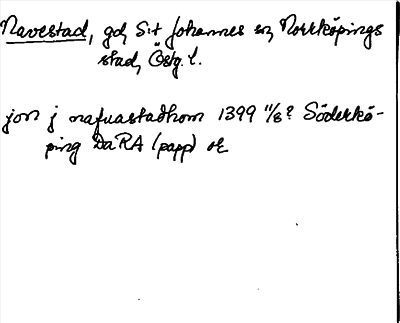 Navestad, gd, S:t Johannes sn, Norrköpings
stad, Östg. l.
jon j nafuastadhom 1399 11/8? Söderkö-
ping DaRA (papp) ok